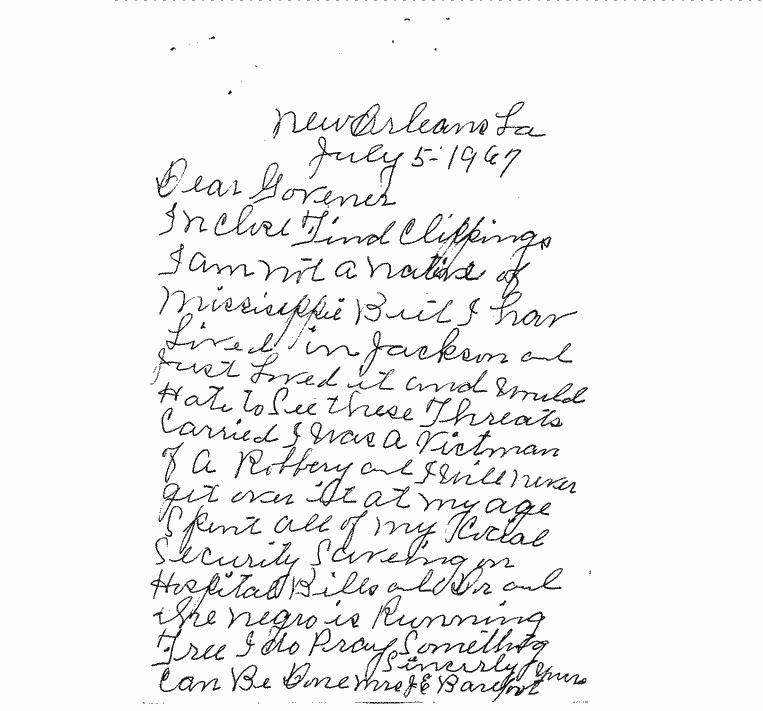 New Orleans La
July 5-1967
Dear Govener
Inclose Find Clippings
I am not a native of
Mississippie But I hav
Lived in Jackson and
Just Loved it and Would
Hate to See these Threats
Carried I Was A Victman
of A Robbery and I Will never
get over it at my age
Spent all of my Social
Security Saveing on
Hospital Bills and Dr and
the negro is Running
Free I do Pray Something
Can Be Done Sincerly yours
Mrs J E Barefoot